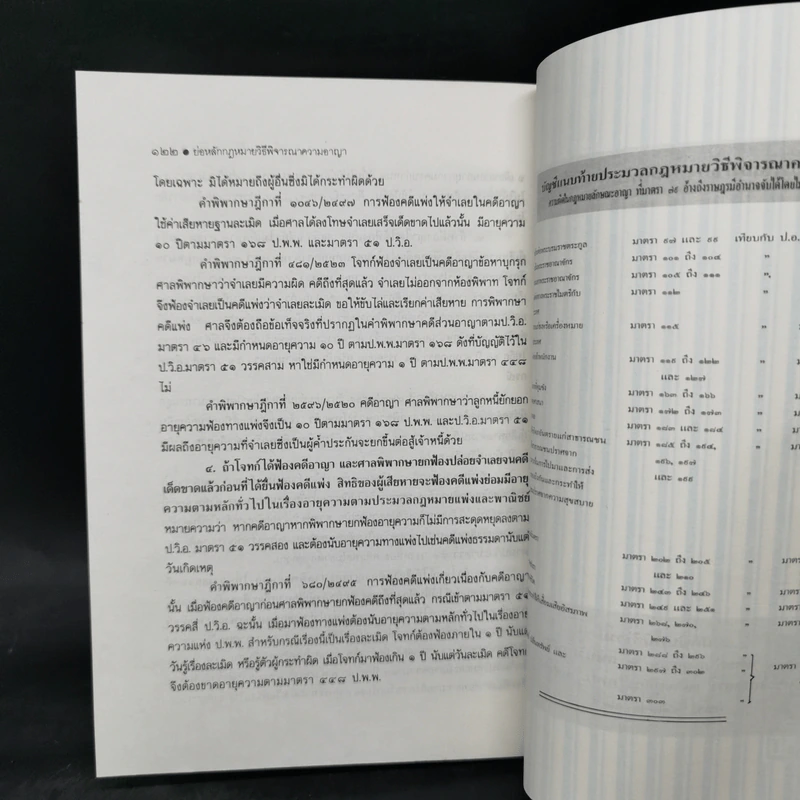 ๑๒๒ ● ย่อหลักกฎหมายวิธีพิจารณาความอาญา
โดยเฉพาะ มิได้หมายถึงผู้อื่นซึ่งมิได้กระทำผิดด้วย
คำพิพากษาฎีกาที่ ๑๐๔๖/๒๔๙๗ การฟ้องคดีแพ่งให้จำเลยในคดีอาญา
ใช้ค่าเสียหายฐานละเมิด เมื่อศาลได้ลงโทษจำเลยเสร็จเด็ดขาดไปแล้วนั้น มีอายุความ
๑๐ ปีตามมาตรา ๑๖๘ ป.พ.พ. และมาตรา ๕๑ ป.วิ.อ.
คำพิพากษาฎีกาที่ ๔๘๑/๒๕๒๓ โจทก์ฟ้องจำเลยเป็นคดีอาญาข้อหาบุกรุก
ศาลพิพากษาว่าจำเลยมีความผิด คดีถึงที่สุดแล้ว จำเลยไม่ออกจากห้องพิพาท โจทก์
จึงฟ้องจำเลยเป็นคดีแพ่งว่าจำเลยละเมิด ขอให้ขับไล่และเรียกค่าเสียหาย การพิพากษา
คดีแพ่ง ศาลจึงต้องถือข้อเท็จจริงที่ปรากฏในคำพิพากษาคดีส่วนอาญาตามป.วิ.อ.
มาตรา ๔๖ และมีกำหนดอายุความ ๑๐ ปี ตามป.พ.พ.มาตรา ๑๖๘ ดังที่บัญญัติไว้ใน
ป.วิ.อ.มาตรา ๕๑ วรรคสาม หาใช่มีกำหนดอายุความ ๑ ปี ตามป.พ.พ.มาตรา ๔๔๘
ไม่
คำพิพากษาฎีกาที่ ๒๕๙๖/๒๕๒๐ คดีอาญา ศาลพิพากษาว่าลูกหนี้ยักยอก
อายุความฟ้องทางแพ่งจึงเป็น ๑๐ ปีตามมาตรา ๑๖๘ ป.พ.พ. และป.วิ.อ.มาตรา ๕๑
มีผลถึงอายุความที่จำเลยซึ่งเป็นผู้ค้ำประกันจะยกขึ้นต่อสู้เจ้าหนี้ด้วย
๔. ถ้าโจทก์ได้ฟ้องคดีอาญา และศาลพิพากษายกฟ้องปล่อยจำเลยจนคดี
เด็ดขาดแล้วก่อนที่ได้ยื่นฟ้องคดีแพ่ง สิทธิของผู้เสียหายจะฟ้องคดีแพ่งย่อมมีอายุ
ความตามหลักทั่วไปในเรื่องอายุความตามประมวลกฎหมายแพ่งและพาณิชย์
หมายความว่า หากคดีอาญาหากพิพากษายกฟ้องอายุความก็ไม่มีการสะดุดหยุดลงตาม
ป.วิ.อ. มาตรา ๕๑ วรรคสอง และต้องนับอายุความทางแพ่งไปเช่นคดีแพ่งธรรมดานับแต่
วันเกิดเหตุ
คำพิพากษาฎีกาที่ ๖๘๐/๒๔๙๕ การฟ้องคดีแพ่งเกี่ยวเนื่องกับคดีอาญา
นั้น เมื่อฟ้องคดีอาญาก่อนศาลพิพากษายกฟ้องคดีถึงที่สุดแล้ว กรณีเข้าตามมาตรา ๕๑
วรรคสี่ ป.วิ.อ. ฉะนั้น เมื่อมาฟ้องทางแพ่งต้องนับอายุความตามหลักทั่วไปในเรื่องอายุ
ความแห่ง ป.พ.พ. สำหรับกรณีเรื่องนี้เป็นเรื่องละเมิด โจทก์ต้องฟ้องภายใน ๑ ปี นับแต่
วันรู้เรื่องละเมิด หรือรู้ตัวผู้กระทำผิด เมื่อโจทก์มาฟ้องเกิน ๑ ปี นับแต่วันละเมิด คดีโจทก์
จึงต้องขาดอายุความตามมาตรา ๔๔๘ ป.พ.พ.
บัญชีแนบท้ายประมวลกฎหมายวิธีพิจารณาค
มาตรา ๙๗ และ ๙๙ เทียบกับ ป.อ.
มาตรา ๑๐๑ ถึง ๑๐๔ "
มาตรา ๑๐๕ ถึง ๑๑๑ "
มาตรา ๑๑๒ "
มาตรา ๑๑๕ "
มาตรา ๑๑๙ ถึง ๑๒๒ "
และ ๑๒๗
มาตรา ๑๖๓ ถึง ๑๖๖ "
มาตรา ๑๗๒ ถึง ๑๗๓ "
มาตรา ๑๘๓ และ ๑๘๔ "
มาตรา ๑๘๕ ถึง ๑๙๔, "
๑๙๖, ๑๙๗
และ ๑๙๙
มาตรา ๒๐๒ ถึง ๒๐๕ "
และ ๒๑๐
มาตรา ๒๔๓ ถึง ๒๔๖ "
มาตรา ๒๔๙ และ ๒๕๑ "
มาตรา ๒๖๘, ๒๗๐, "
๒๗๖
มาตรา ๒๘๘ ถึง ๒๙๖ "
มาตรา ๒๙๗ ถึง ๓๐๒ "
มาตรา ๓๐๓ "